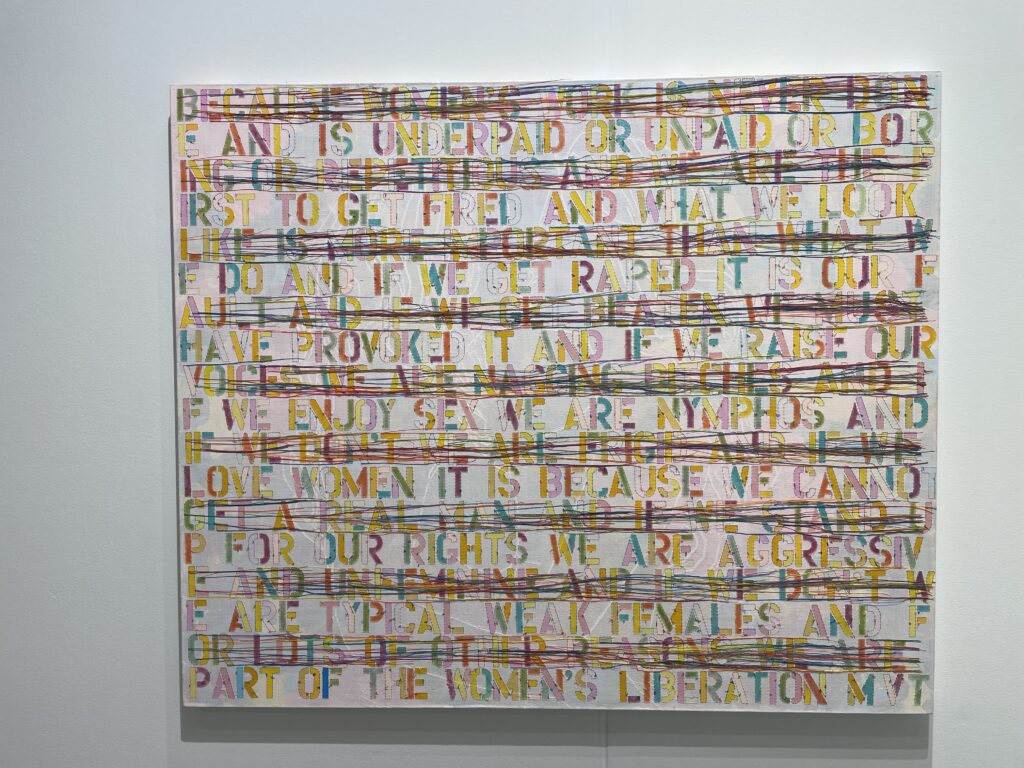 BECAUSE WOMEN'S WORK IS NEVER DON
E AND IS UNDERPAID OR UNPAID OR BOR
ING OR REPETITIOUS AND WE ARE THE F
IRST TO GET FIRED AND WHAT WE LOOK
LIKE IS MORE IMPORTANT THAN WHAT W
E DO AND IF WE GET RAPED IT IS OUR F
AULT AND IF WE GET BEATEN WE MUST
HAVE PROVOKED IT AND IF WE RAISE OUR
VOICES WE ARE NAGGING BITCHES AND I
F WE ENJOY SEX WE ARE NYMPHOS AND
IF WE DON'T WE ARE FRIGID AND IF WE
LOVE WOMEN IT IS BECAUSE WE CANNOT
GET A REAL MAN AND IF WE STAND U
P FOR OUR RIGHTS WE ARE AGGRESSIV
E AND UNFEMININE AND IF WE DON'T W
E ARE TYPICAL WEAK FEMALES AND F
OR LOTS OF OTHER REASONS WE ARE
PART OF THE WOMEN'S LIBERATION MVT